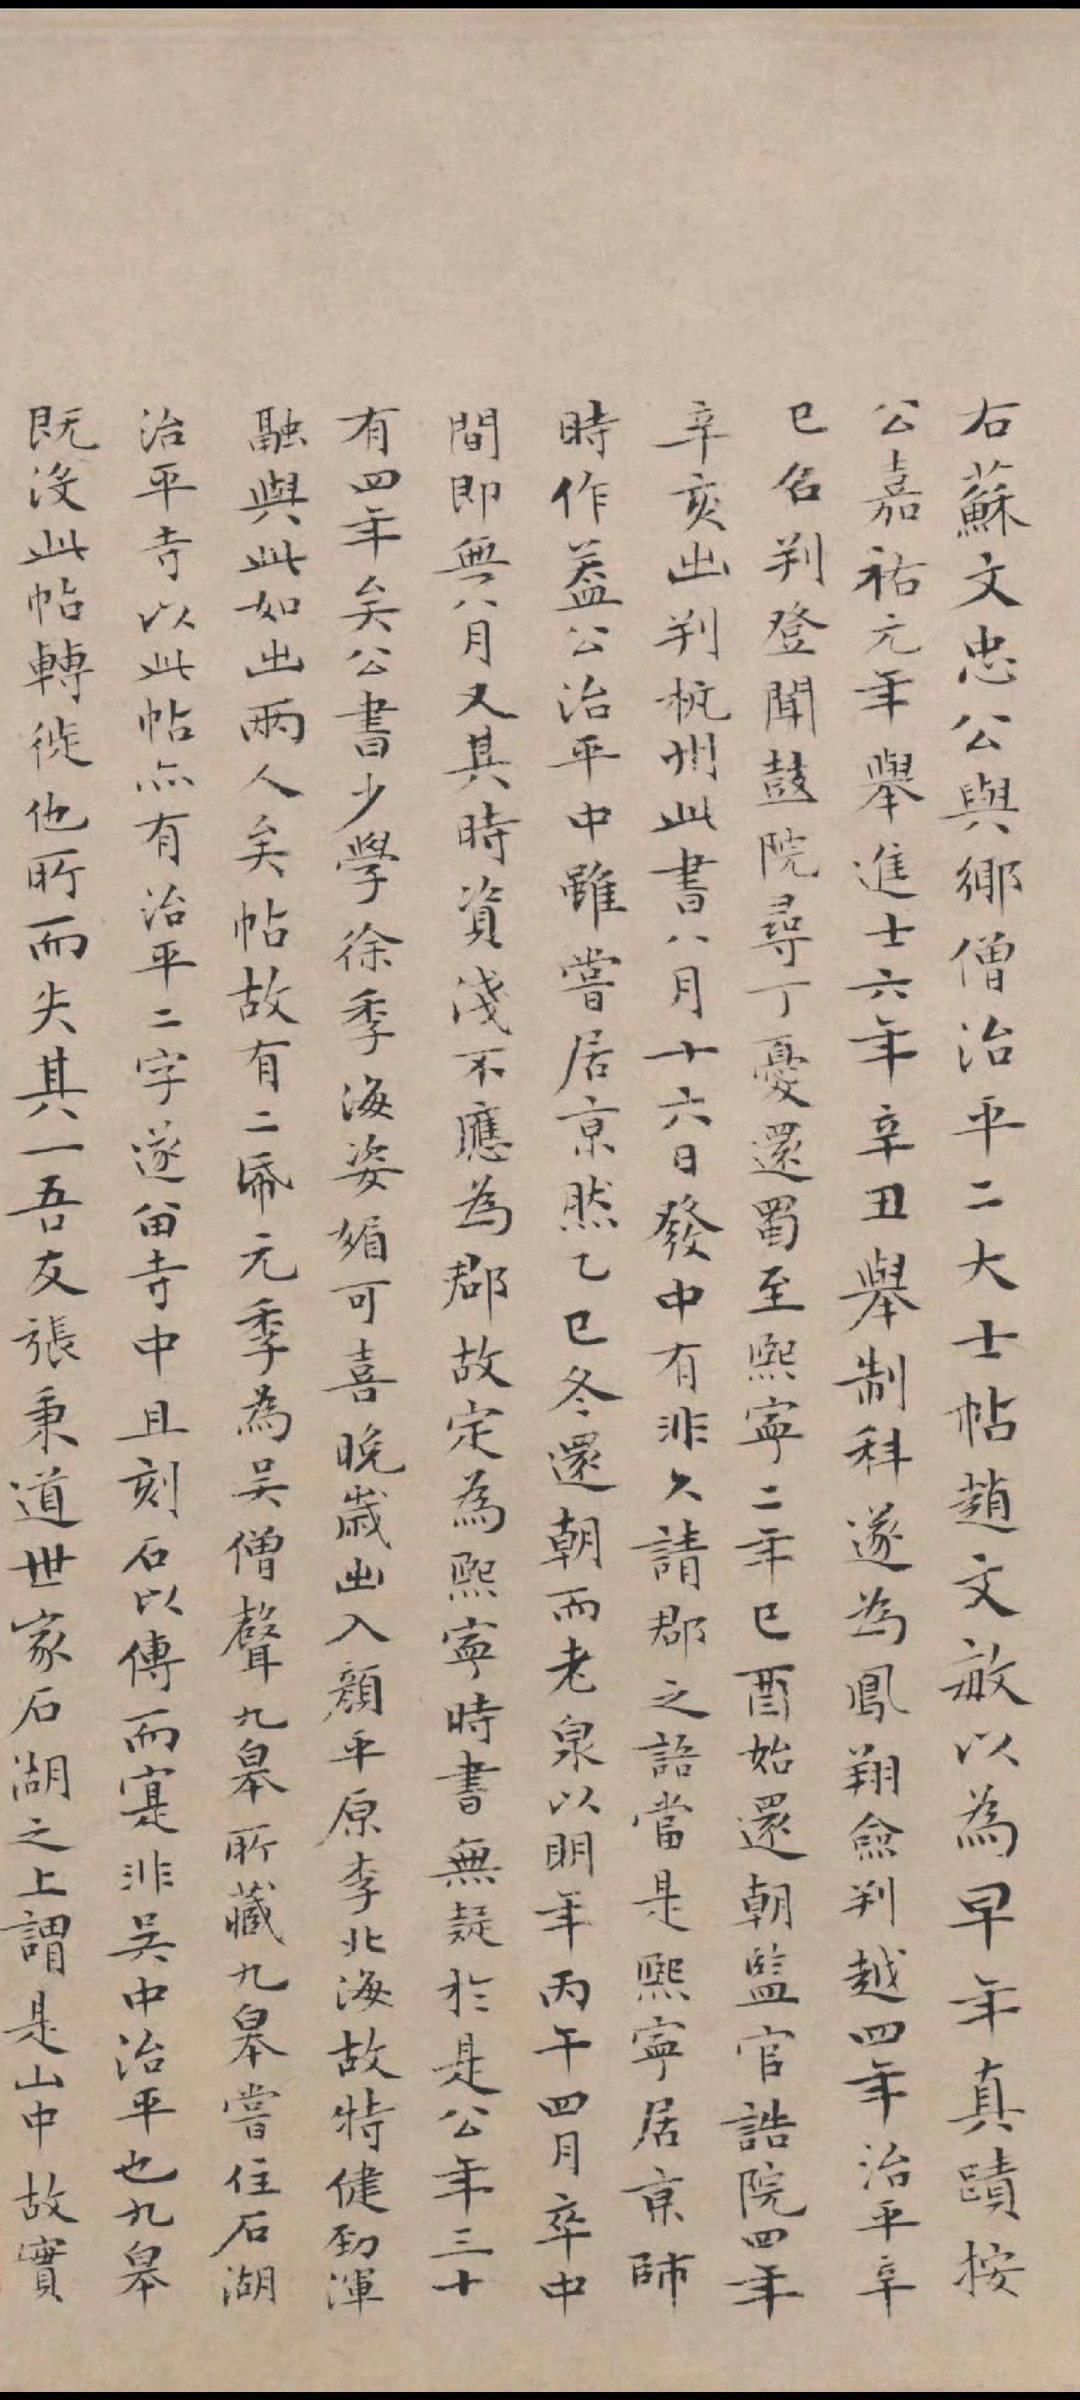 右蘇文忠公與鄉僧治平二大士帖趙文敏以為早年真蹟按
公嘉祐元年舉進士六年辛丑舉制科遂為鳳翔僉判越四年治平辛
巳名判登聞鼓院尋丁憂還蜀至熙寧二年巳酉始還朝監官誥院四年
辛亥出判杭州此書八月十六日發中有非久請郡之語當是熙寧居京師
時作葢公治平中雖嘗居京然乙巳冬還朝而老泉以明年丙午四月卒中
間即無八月又其時資淺不應為郡故定為熙寧時書無疑於是公年三十
有四年矣公書少學徐季海姿媚可喜晚歲出入顏平原李北海故特健勁渾
融與此如出兩人矣帖故有二帋元季為吳僧聲九皋所藏九皋嘗住石湖
治平寺以此帖亦有治平二字遂留寺中且刻石以傳而寔非吳中治平也九皋
既没此帖轉徙他所而失其一吾友張秉道世家石湖之上謂是山中故實